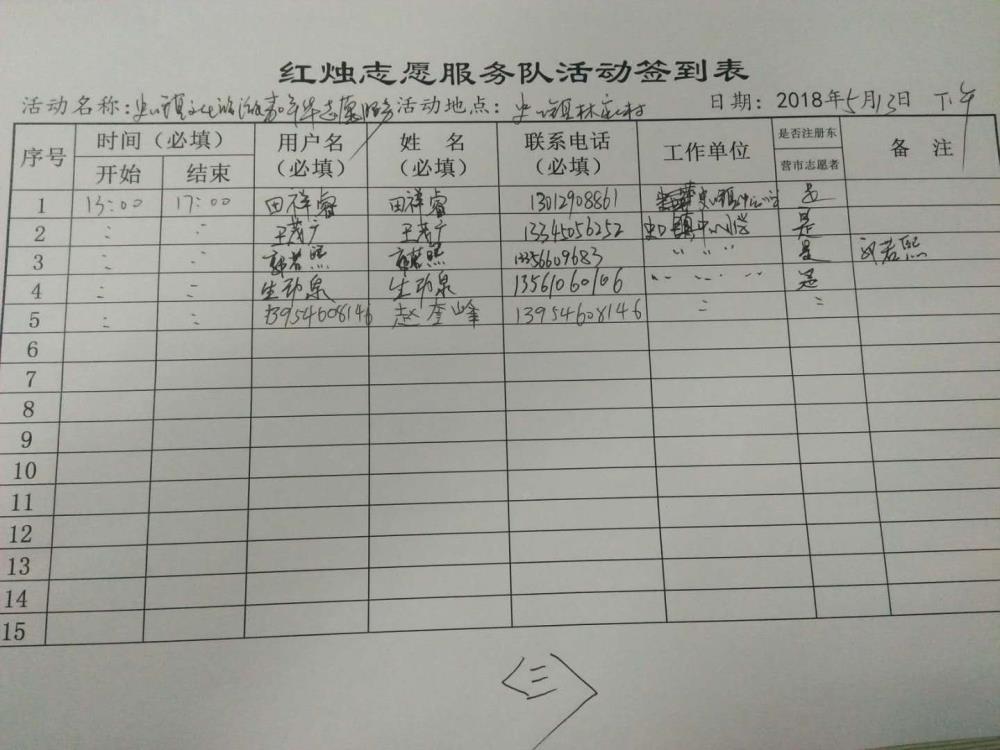 红烛志愿服务队活动签到表
活动名称:史口镇文化 志愿服务 活动地点: 史口镇林家村 日期: 2018年5月13日 下午
序号 时间(必填) 用户名(必填) 姓 名(必填) 联系电话(必填) 工作单位 是否注册东营市志愿者 备 注
开始 结束
1 13:00 17:00 田祥睿 田祥睿 13012908861 史口镇中心 是
2 〃 〃 王茂广 王茂广 13345056252 史口镇中心 是
3 〃 〃 若熙 若熙 13356609683 〃 〃 〃 是 若熙
4 〃 〃 生劲泉 生劲泉 13561060106 〃 〃 〃 〃 是
5 〃 〃 13954608146 赵奎峰 13954608146 〃 〃
6
7
8
9
10
11
12
13
14
15
三